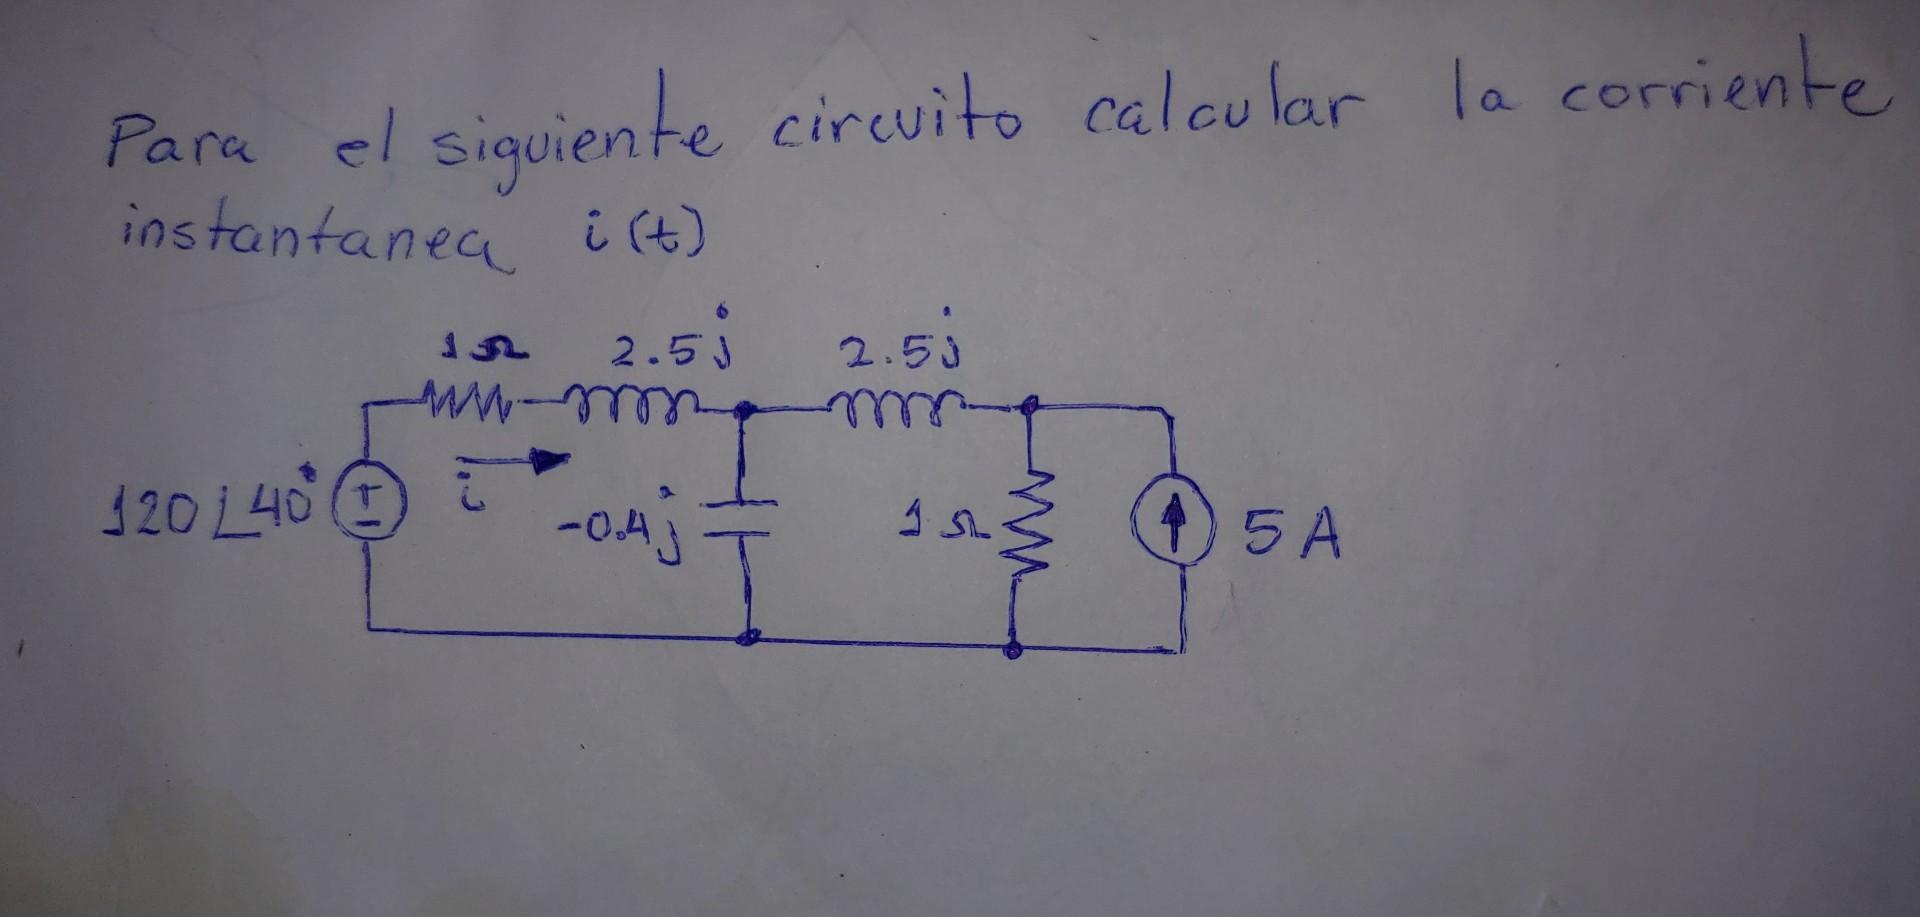 Para el siguiente circuito calcular la corriente
instantanea i(t)
1Ω 2.5j 2.5j
120∠40° + - i -0.4j 1Ω 5A